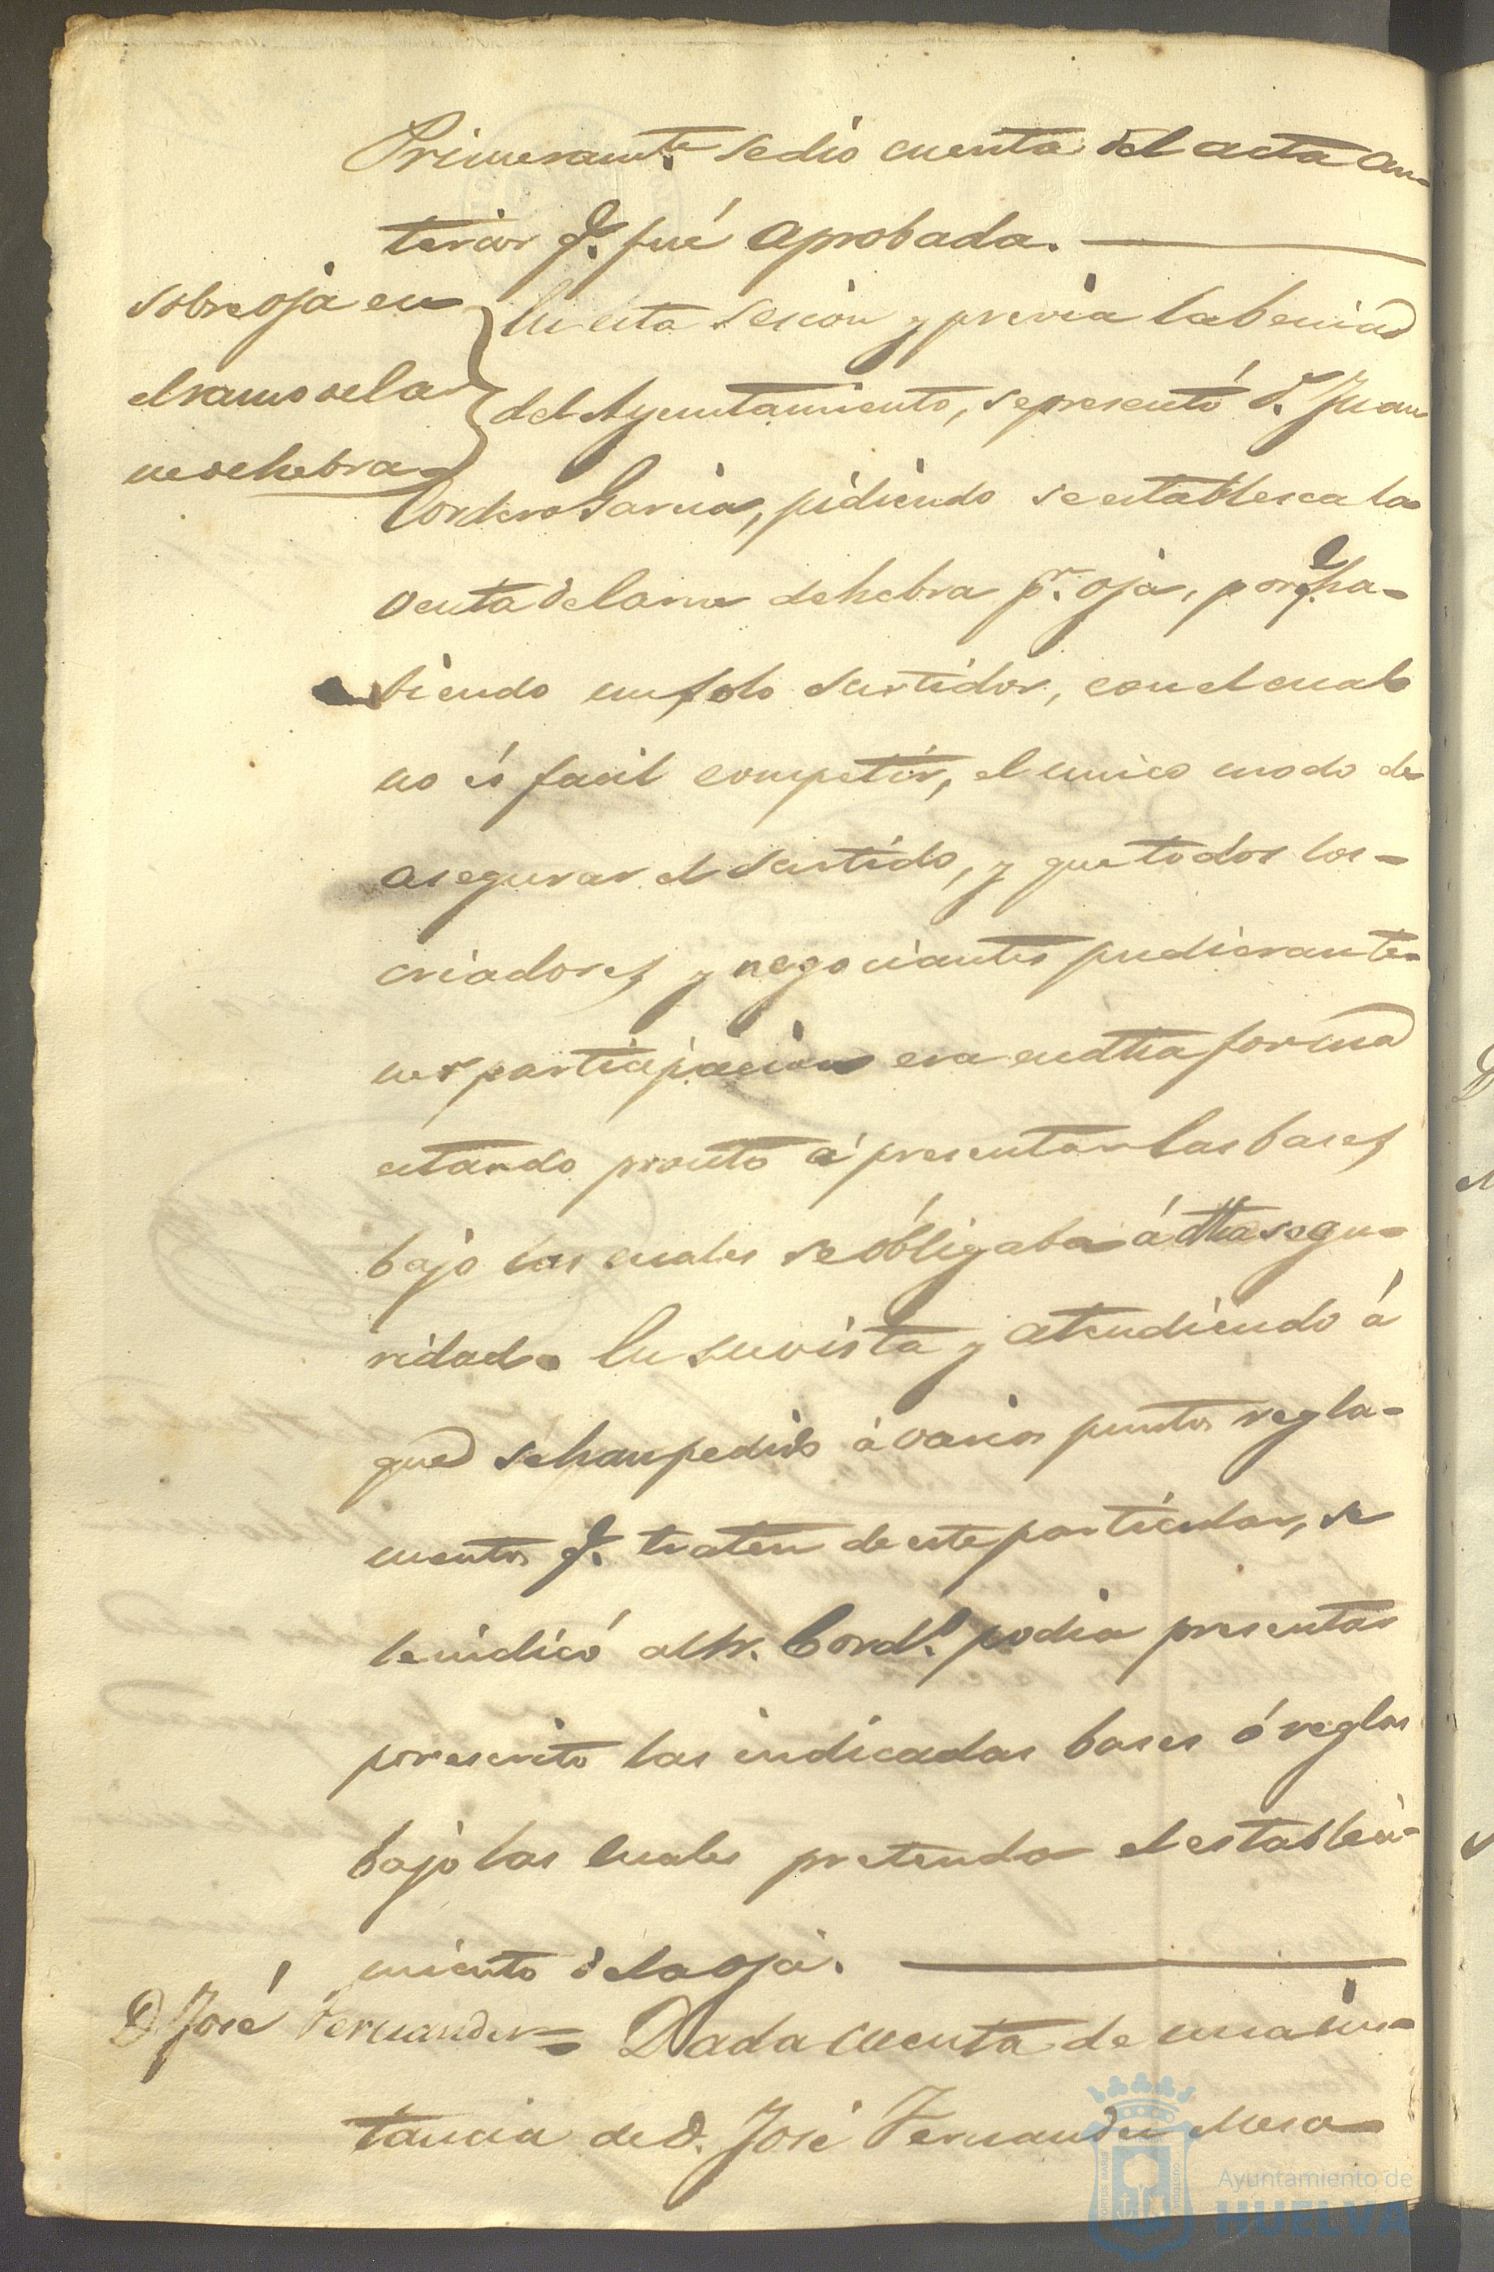 Primeramte. se dió cuenta del acta an-
terior q. fué aprobada.
Sobre oja en
el ramo de la
ne de hebra
En esta sesion y previa la benia
del Ayuntamiento, se presentó D. Juan
Cordero Garcia, pidiendo se establesca la
venta de carne de hebra pr. oja, por q. ha-
biendo un solo surtidor, con el cual
no és facil competir, el unico modo de
asegurar el surtido, y que todos los
criadores y negociantes pudieran te-
ner participacion era en dha forma
estando pronto á presentar las bases
bajo las cuales se óbligaba á dha segu-
ridad. En su vista y atendiendo á
que se han pedido á varios puntos regla-
mentos q. traten de este particular, se
le indicó al Sr. Cordo. podia presentar
por escrito las indicadas bases ó reglas
bajo las cuales pretenda el estableci-
miento de la oja.
D. José Fernandez = Dada cuenta de una ins-
tancia de D. José Fernandez Mesa
Ayuntamiento de
HUELVA